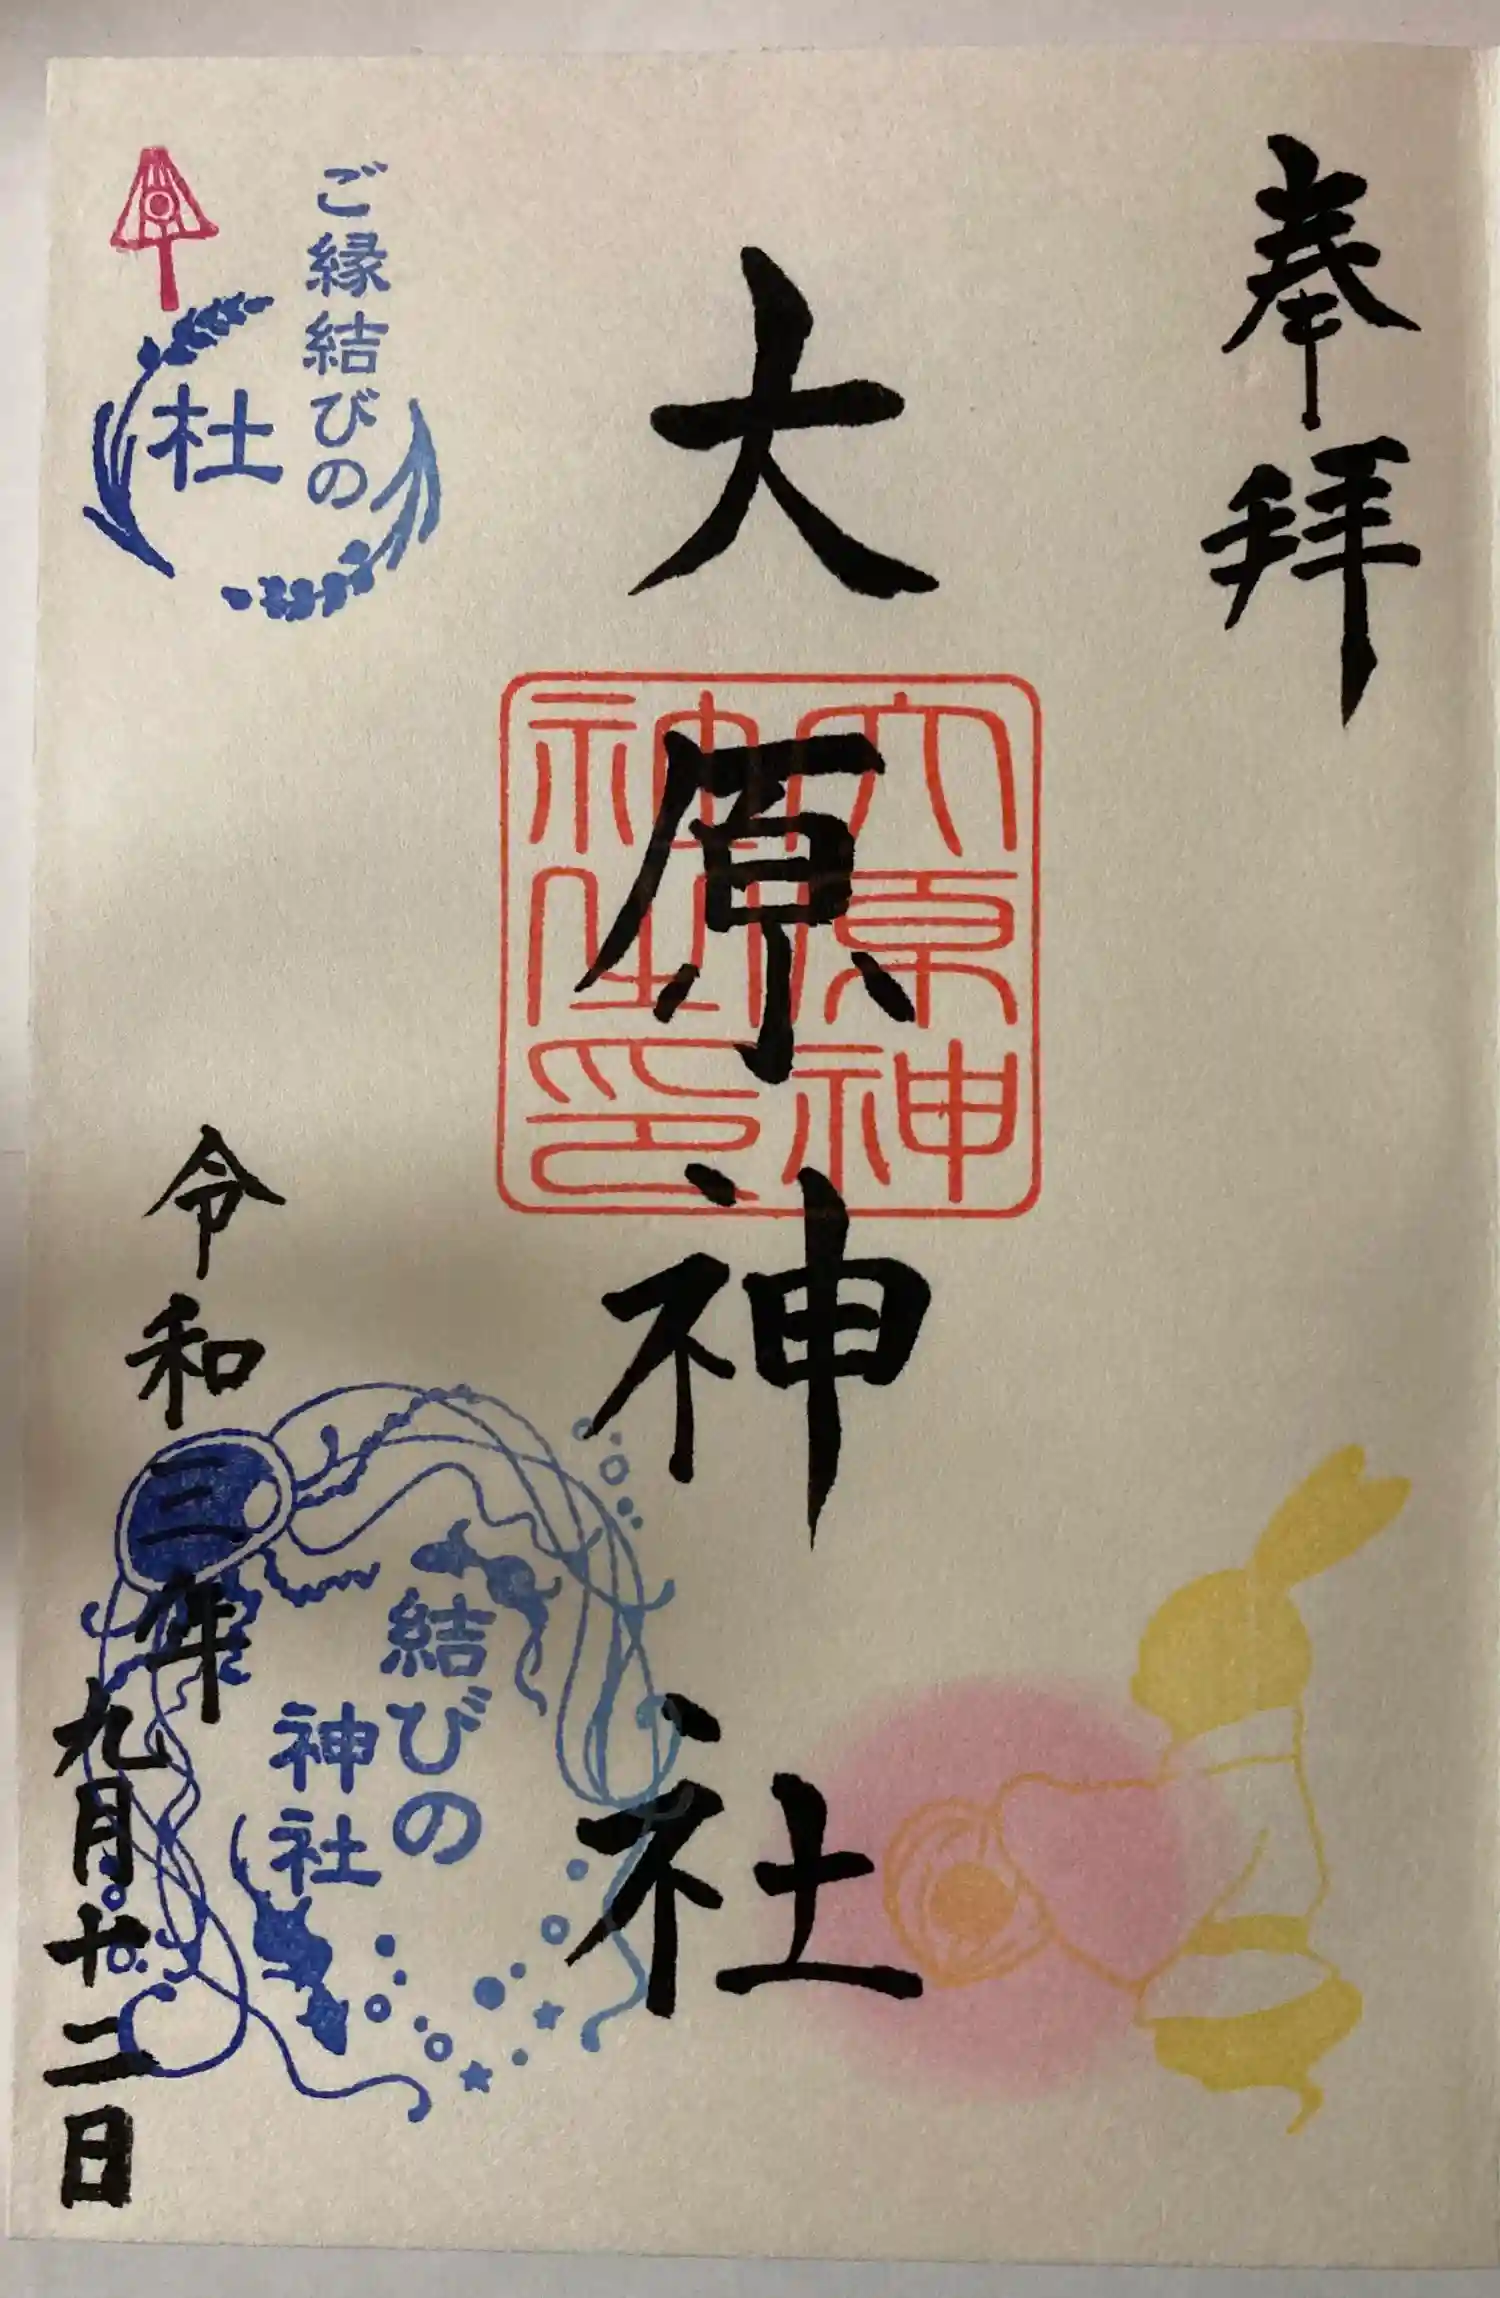 奉拝
大原神社
大原神
神社印
ご縁結びの
杜
令和三年
九月十二日
結びの
神社